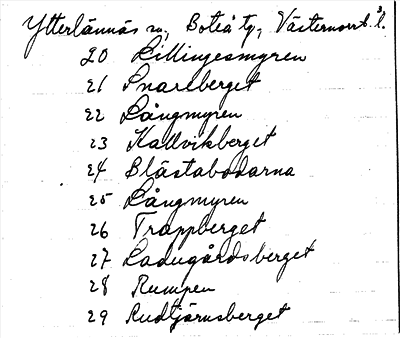 Ytterlännäs sn, Boteå tg, Västernorrl. l.
20 Lillingesmyren
21 Snarberget
22 Långmyren
23 Kallvikberget
24 Blästabodarna
25 Långmyren
26 Trappberget
27 Ladugårdsberget
28 Rumpen
29 Rudtjärnsberget